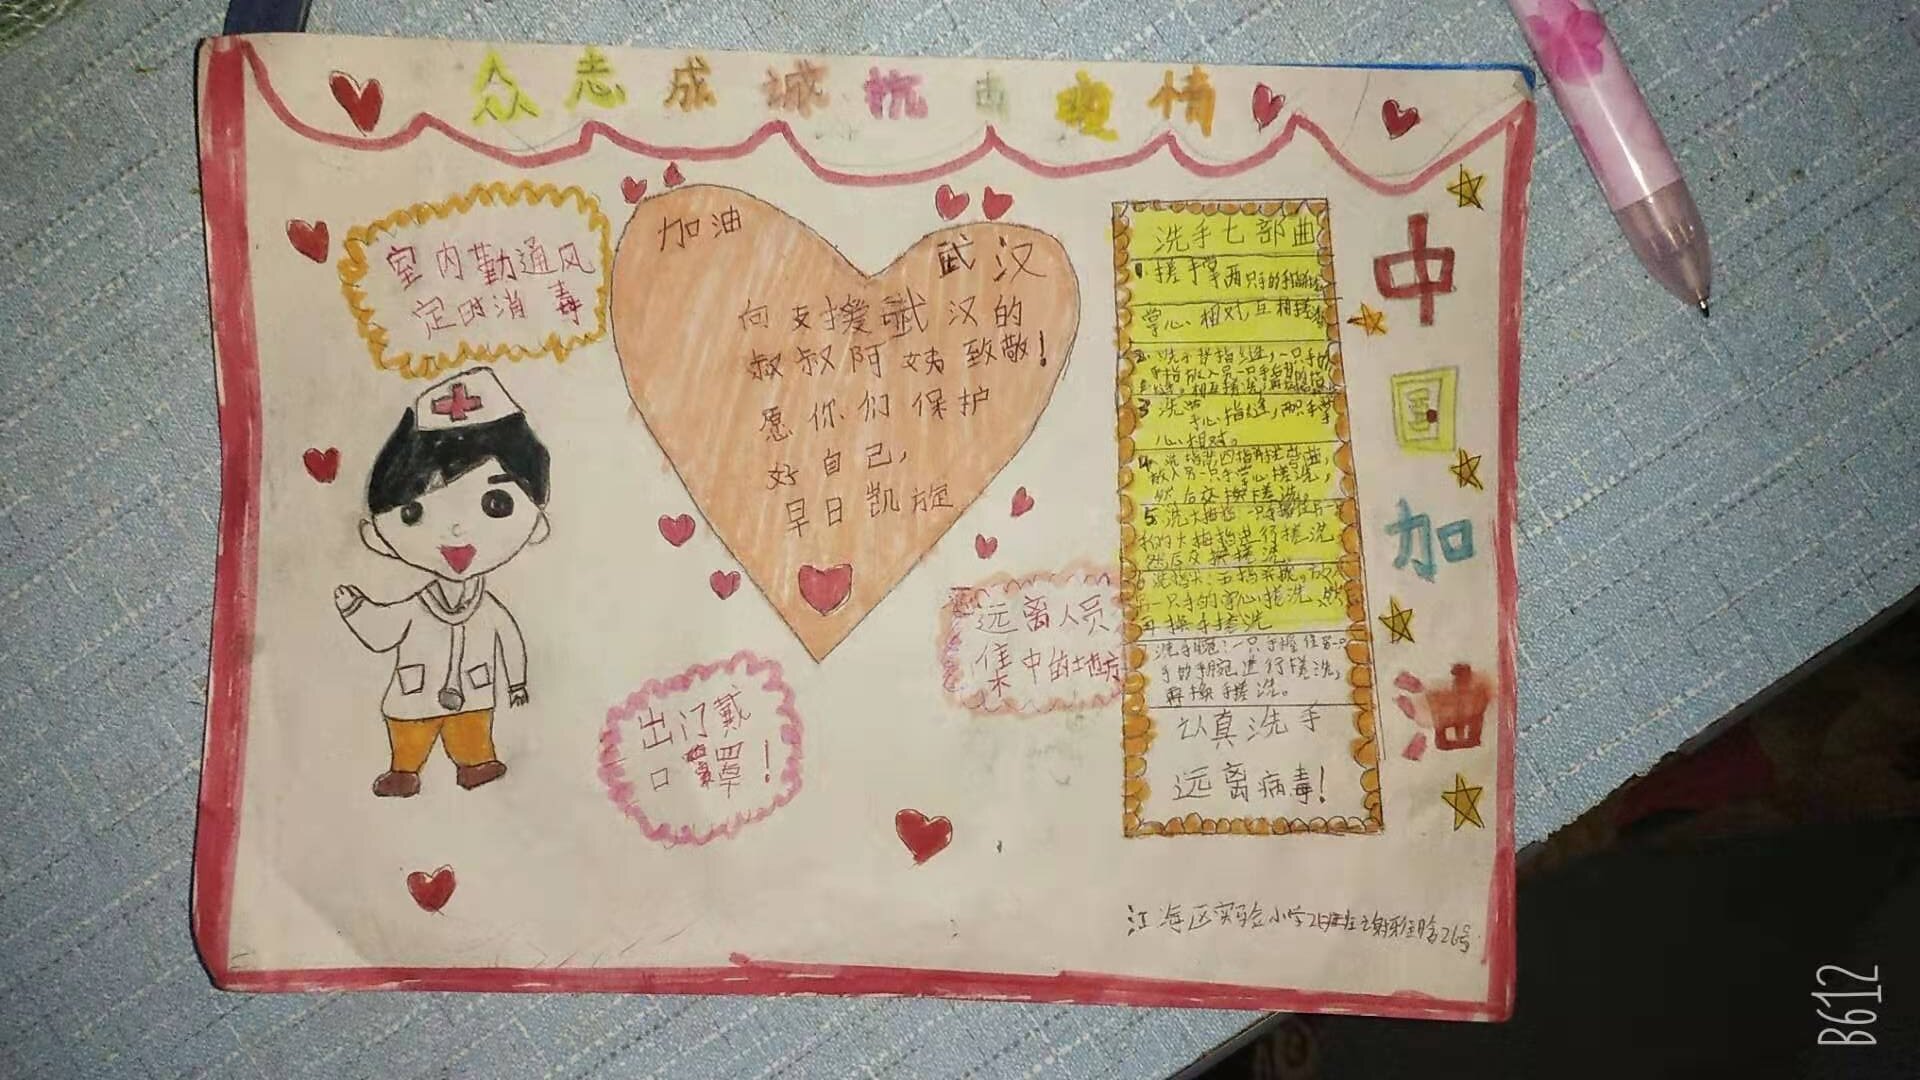 众志成诚抗击疫情
室内勤通风
定时消毒
加油
武汉
向支援武汉的
叔叔阿姨致敬!
愿你们保护
好自己,
早日凯旋
出门戴
口罩!
远离人员
集中的地方
洗手七部曲
1.搓手掌两只手的手
掌心相对,互相搓
2.洗手指缝,一只手的
手指放入另一只手
3洗掌
手心指缝,两手掌
心相对。
4.洗指背四指
放入另一只手掌心搓洗,
然后交换搓洗。
5.洗大拇指一只手握住另一
的大拇指进行搓洗
然后交换搓洗
洗指尖:五指 放入
另一只手的掌心搓洗,然
再换手搓洗
洗手腕:一只手握住另一只
手的手腕进行搓洗,
再换手搓洗。
认真洗手
远离病毒!
中
国
加
油
江海区实验小学 26号
B612